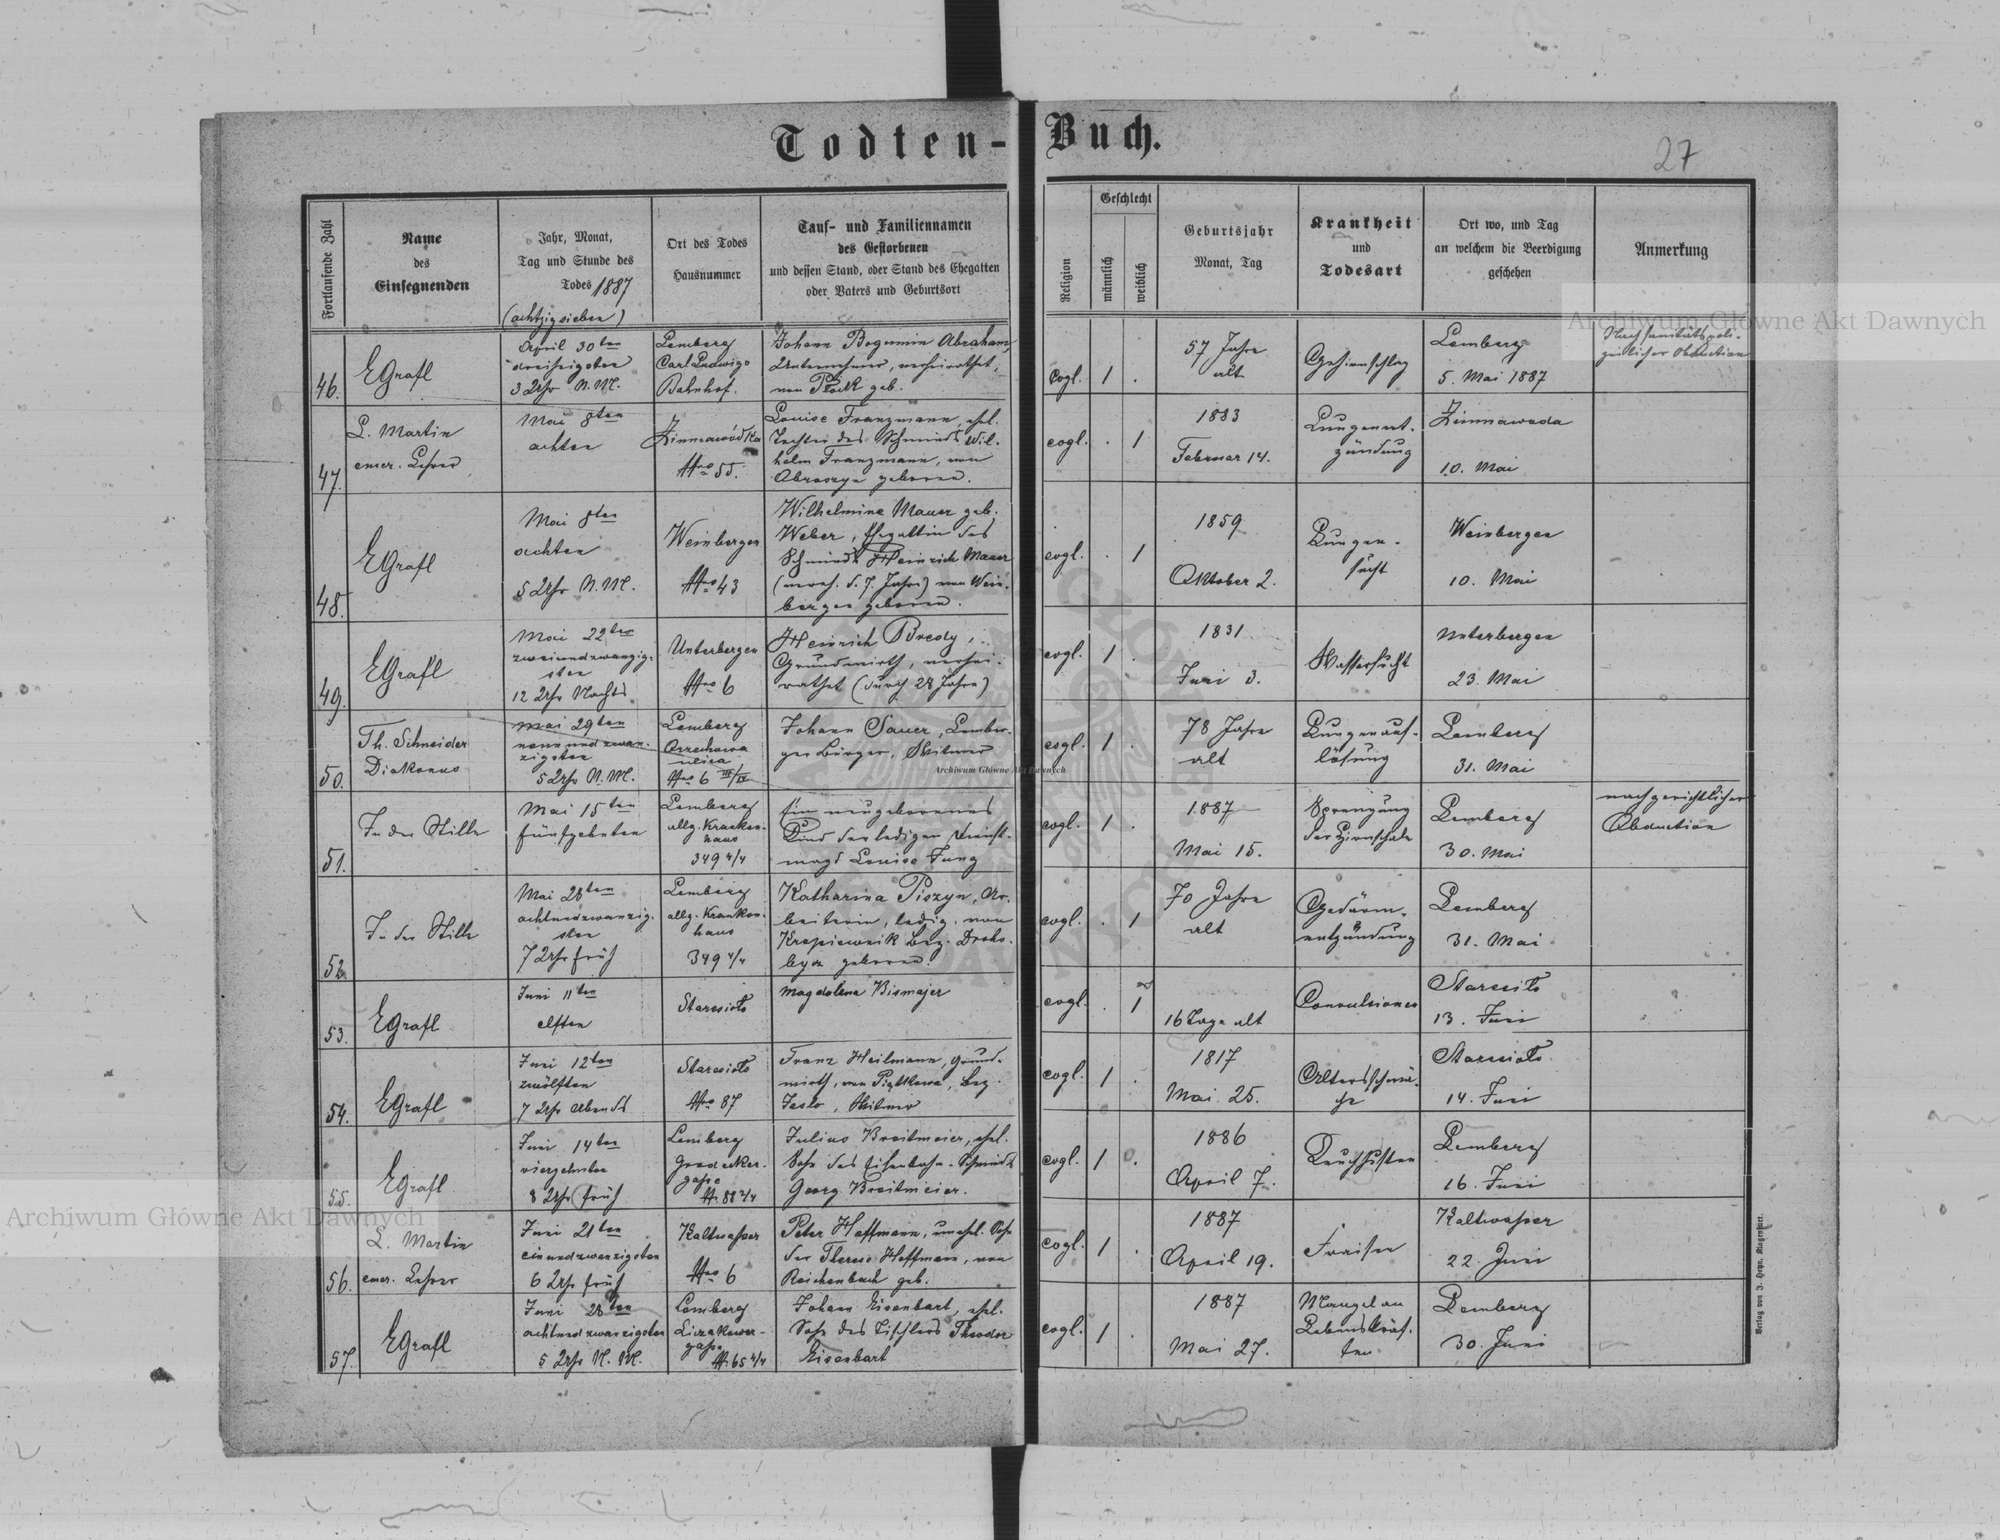 Todten-Buch.
27
Fortlaufende Zahl
Name
des
Einsegnenden
Jahr, Monat,
Tag und Stunde des
Todes 1887
(achtzigsieben)
Ort des Todes
Hausnummer
Tauf- und Familiennamen
des Gestorbenen
und dessen Stand, oder Stand des Ehegatten
oder Vaters und Geburtsort
Religion
Geschlecht
männlich
weiblich
Geburtsjahr
Monat, Tag
Krankheit
und
Todesart
Ort wo, und Tag
an welchem die Beerdigung
geschehen
Anmerkung
46.
EGrafl
April 30ten
dreißigsten
3 Uhr N.M.
Lemberg
Carl Ludwigs
Bahnhof.
Johann Bogumin Abraham,
Unternehmer, verheirathet,
von geb.
evgl.
1
.
57 Jahre
alt
Gehirnschlag
Lemberg
5. Mai 1887
Nach sanitätspoli-
zeilicher Obduction
47.
L. Martin
emer. Lehrer
Mai 8ten
achten
Zimnawódka
Nro 55.
Louise Franzmann, ehel.
Tochter des Schmieds Wil-
helm Franzmann, von
geboren.
evgl.
.
1
1883
Februar 14.
Lungenent-
zündung
Zimnawoda
10. Mai
48.
EGrafl
Mai 8ten
achten
5 Uhr N.M.
Weinbergen
Nro 43
Wilhelmine Mauer geb.
Weber, Ehegattin des
Schmieds Heinrich Mauer
(verh. d. 7. Jahre) von Wein-
bergen geboren.
evgl.
.
1
1859
Oktober 2.
Lungen-
sucht
Weinbergen
10. Mai
49.
EGrafl
Mai 22ten
zweiundzwanzig-
sten
12 Uhr Nachts
Unterbergen
Nro 6
Heinrich Bredy,
Grundwirth, verhei-
rathet (durch 28 Jahre)
evgl.
1
.
1831
Juni 3.
Wassersucht
Unterbergen
23. Mai
50.
Th. Schneider
Diakonus
Mai 29ten
neunundzwan-
zigsten
5 Uhr N.M.
Lemberg
ulica
Nro 6 III/IV
Johann Sauer, Lember-
ger Bürger, Witwer
evgl.
1
.
78 Jahre
alt
Lungenauf-
lösung
Lemberg
31. Mai
51.
In der Stille
Mai 15ten
fünfzehnten
Lemberg
allg. Kranken-
haus
349 4/4
Ein neugeborenes
Kind der ledigen Dienst-
magd Louise Jung
evgl.
1
.
1887
Mai 15.
Sprengung
der Hirnschale
Lemberg
30. Mai
nach gerichtlicher
Obduction
52.
In der Stille
Mai 28ten
achtundzwanzig-
sten
7 Uhr früh
Lemberg
allg. Kranken-
haus
349 4/4
Katharina Piszyn, Ar-
beiterin, ledig, von
Bez. Droho-
bycz geboren.
evgl.
.
1
70 Jahre
alt
Gedärm-
entzündung
Lemberg
31. Mai
53.
EGrafl
Juni 11ten
elften
Staresioło
Magdalena Bismajer
evgl.
.
1
16 Tage alt
Convulsionen
Staresioło
13. Juni
54.
EGrafl
Juni 12ten
zwölften
7 Uhr Abends
Staresioło
Nro 87
Franz Heilmann, Grund-
wirth, von Bez.
Jasło, Witwer
evgl.
1
.
1817
Mai 25.
Altersschwä-
che
Staresioło
14. Juni
55.
EGrafl
Juni 14ten
vierzehnten
8 Uhr früh
Lemberg
Grodecker-
gasse
N. 88 2/4
Julius Breitmeier, ehel.
Sohn des Eisenbahn-Schmieds
Georg Breitmeier.
evgl.
1
.
1886
April 7.
Keuchhusten
Lemberg
16. Juni
56.
L. Martin
emer. Lehrer
Juni 21ten
einundzwanzigsten
6 Uhr früh
Kaltwasser
Nro 6
Peter Hoffmann, unehel. Sohn
der Therese Hoffmann, von
Reichenbach geb.
evgl.
1
.
1887
April 19.
Fraisen
Kaltwasser
22. Juni
57.
EGrafl
Juni 28ten
achtundzwanzigsten
5 Uhr N.M.
Lemberg
Liczakower-
gasse
N. 65 4/4
Johann Eisenbart, ehel.
Sohn des Tischlers Theodor
Eisenbart
evgl.
1
.
1887
Mai 27.
Mangel an
Lebenskräf-
ten
Lemberg
30. Juni
Verlag von J. Heyn, Klagenfurt.
Archiwum Główne Akt Dawnych
Archiwum Główne Akt Dawnych
Archiwum Główne Akt Dawnych